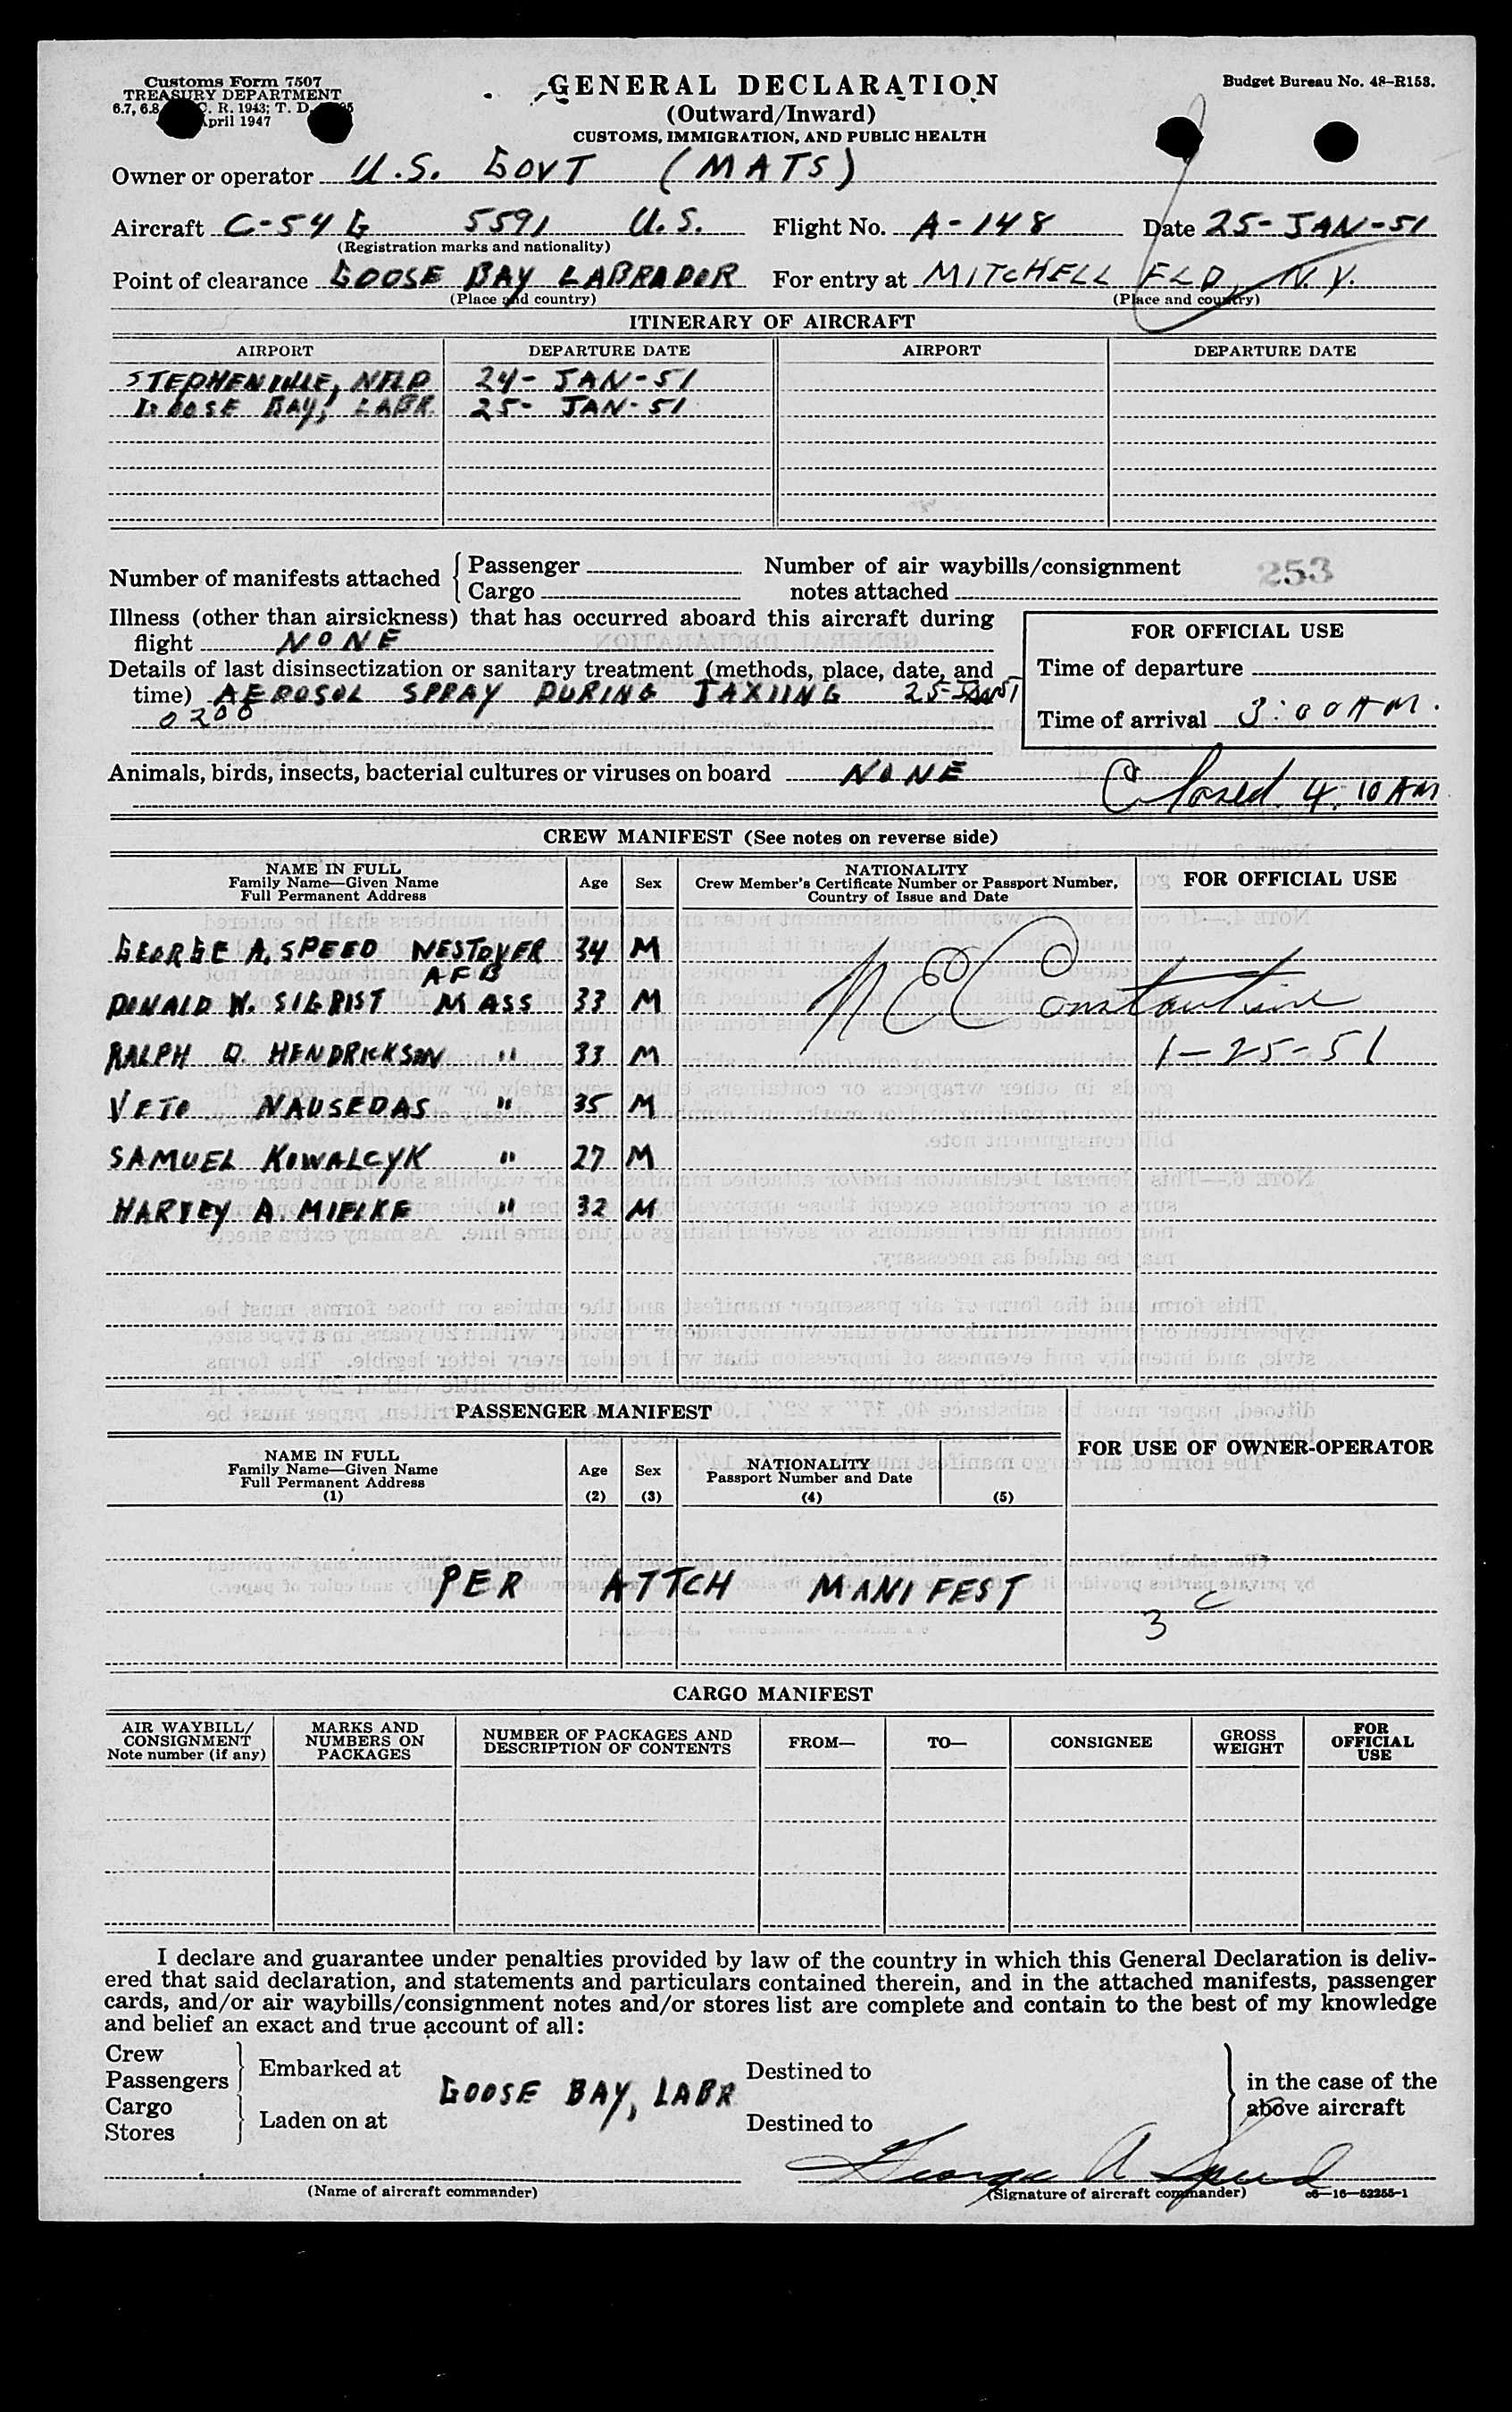 Customs Form 7507
TREASURY DEPARTMENT
April 1947
GENERAL DECLARATION
(Outward/Inward)
CUSTOMS, IMMIGRATION, AND PUBLIC HEALTH
Budget Bureau No. 48-R153.
Owner or operator U.S. GOVT (MATS)
Aircraft C-54 G 5591 U.S. Flight No. A-148 Date 25-JAN-51
(Registration marks and nationality)
Point of clearance GOOSE BAY LABRADOR For entry at MITCHELL FLD, N.Y.
(Place and country) (Place and country)
ITINERARY OF AIRCRAFT
AIRPORT DEPARTURE DATE AIRPORT DEPARTURE DATE
STEPHENVILLE, NFLD 24-JAN-51
GOOSE BAY, LABR. 25-JAN-51
Number of manifests attached { Passenger
Cargo
Number of air waybills/consignment
notes attached
253
Illness (other than airsickness) that has occurred aboard this aircraft during
flight NONE
Details of last disinsectization or sanitary treatment (methods, place, date, and
time) AEROSOL SPRAY DURING TAXIING 25-JAN51
0200
FOR OFFICIAL USE
Time of departure
Time of arrival 3:00 AM.
Animals, birds, insects, bacterial cultures or viruses on board NONE
Closed 4:10 AM
CREW MANIFEST (See notes on reverse side)
NAME IN FULL
Family Name—Given Name
Full Permanent Address
Age Sex
NATIONALITY
Crew Member's Certificate Number or Passport Number,
Country of Issue and Date
FOR OFFICIAL USE
GEORGE A. SPEED WESTOVER 34 M
AFB
DONALD W. SIGRIST MASS 33 M
N E Constantine
RALPH D. HENDRICKSON " 33 M 1-25-51
VETO NAUSEDAS " 35 M
SAMUEL KOWALCYK " 27 M
HARVEY A. MIELKE " 32 M
PASSENGER MANIFEST
NAME IN FULL
Family Name—Given Name
Full Permanent Address
(1)
Age
(2)
Sex
(3)
NATIONALITY
Passport Number and Date
(4) (5)
FOR USE OF OWNER-OPERATOR
PER ATTCH MANIFEST
3 C
CARGO MANIFEST
AIR WAYBILL/
CONSIGNMENT
Note number (if any)
MARKS AND
NUMBERS ON
PACKAGES
NUMBER OF PACKAGES AND
DESCRIPTION OF CONTENTS
FROM—
TO—
CONSIGNEE
GROSS
WEIGHT
FOR
OFFICIAL
USE
I declare and guarantee under penalties provided by law of the country in which this General Declaration is deliv-
ered that said declaration, and statements and particulars contained therein, and in the attached manifests, passenger
cards, and/or air waybills/consignment notes and/or stores list are complete and contain to the best of my knowledge
and belief an exact and true account of all:
Crew
Passengers
Cargo
Stores
Embarked at
Laden on at
GOOSE BAY, LABR
Destined to
Destined to
in the case of the
above aircraft
George A Speed
(Name of aircraft commander) (Signature of aircraft commander) 16—52255-1